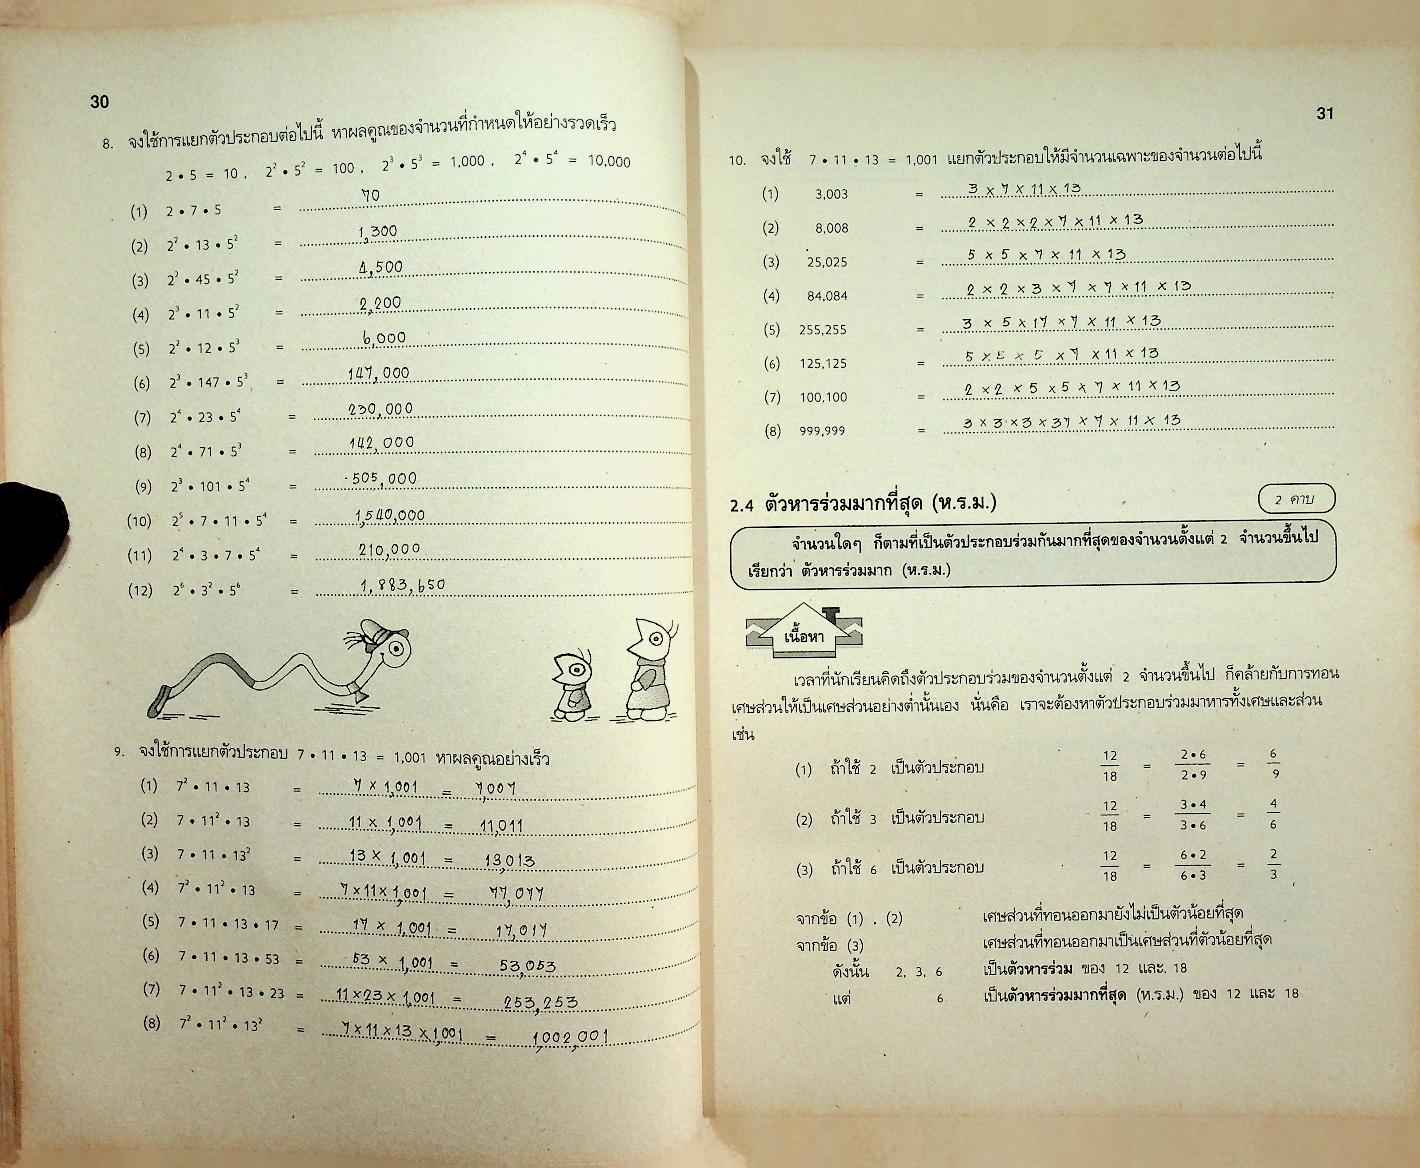 30
8. จงใช้การแยกตัวประกอบต่อไปนี้ หาผลคูณของจำนวนที่กำหนดให้อย่างรวดเร็ว
2 • 5 = 10 , 2² • 5² = 100 , 2³ • 5³ = 1,000 , 2⁴ • 5⁴ = 10,000
(1) 2 • 7 • 5 = 70
(2) 2² • 13 • 5² = 1,300
(3) 2² • 45 • 5² = 4,500
(4) 2³ • 11 • 5² = 2,200
(5) 2² • 12 • 5³ = 6,000
(6) 2³ • 147 • 5³ = 147,000
(7) 2⁴ • 23 • 5⁴ = 230,000
(8) 2⁴ • 71 • 5³ = 142,000
(9) 2³ • 101 • 5⁴ = 505,000
(10) 2⁵ • 7 • 11 • 5⁴ = 1,540,000
(11) 2⁴ • 3 • 7 • 5⁴ = 210,000
(12) 2⁶ • 3² • 5⁶ = 1,883,650
9. จงใช้การแยกตัวประกอบ 7 • 11 • 13 = 1,001 หาผลคูณอย่างเร็ว
(1) 7² • 11 • 13 = 7 × 1,001 = 7,007
(2) 7 • 11² • 13 = 11 × 1,001 = 11,011
(3) 7 • 11 • 13² = 13 × 1,001 = 13,013
(4) 7² • 11² • 13 = 7 × 11 × 1,001 = 77,077
(5) 7 • 11 • 13 • 17 = 17 × 1,001 = 17,017
(6) 7 • 11 • 13 • 53 = 53 × 1,001 = 53,053
(7) 7 • 11² • 13 • 23 = 11 × 23 × 1,001 = 253,253
(8) 7² • 11² • 13² = 7 × 11 × 13 × 1,001 = 1,002,001
31
10. จงใช้ 7 • 11 • 13 = 1,001 แยกตัวประกอบให้มีจำนวนเฉพาะของจำนวนต่อไปนี้
(1) 3,003 = 3 × 7 × 11 × 13
(2) 8,008 = 2 × 2 × 2 × 7 × 11 × 13
(3) 25,025 = 5 × 5 × 7 × 11 × 13
(4) 84,084 = 2 × 2 × 3 × 7 × 7 × 11 × 13
(5) 255,255 = 3 × 5 × 17 × 7 × 11 × 13
(6) 125,125 = 5 × 5 × 5 × 7 × 11 × 13
(7) 100,100 = 2 × 2 × 5 × 5 × 7 × 11 × 13
(8) 999,999 = 3 × 3 × 3 × 37 × 7 × 11 × 13
2.4 ตัวหารร่วมมากที่สุด (ห.ร.ม.) 2 คาบ
จำนวนใดๆ ก็ตามที่เป็นตัวประกอบร่วมกันมากที่สุดของจำนวนตั้งแต่ 2 จำนวนขึ้นไป
เรียกว่า ตัวหารร่วมมาก (ห.ร.ม.)
เนื้อหา
เวลาที่นักเรียนคิดถึงตัวประกอบร่วมของจำนวนตั้งแต่ 2 จำนวนขึ้นไป ก็คล้ายกับการทอน
เศษส่วนให้เป็นเศษส่วนอย่างต่ำนั้นเอง นั่นคือ เราจะต้องหาตัวประกอบร่วมมาหารทั้งเศษและส่วน
เช่น
(1) ถ้าใช้ 2 เป็นตัวประกอบ 12/18 = 2•6/2•9 = 6/9
(2) ถ้าใช้ 3 เป็นตัวประกอบ 12/18 = 3•4/3•6 = 4/6
(3) ถ้าใช้ 6 เป็นตัวประกอบ 12/18 = 6•2/6•3 = 2/3
จากข้อ (1) , (2) เศษส่วนที่ทอนออกมายังไม่เป็นตัวน้อยที่สุด
จากข้อ (3) เศษส่วนที่ทอนออกมาเป็นเศษส่วนที่ตัวน้อยที่สุด
ดังนั้น 2, 3, 6 เป็นตัวหารร่วม ของ 12 และ 18
แต่ 6 เป็นตัวหารร่วมมากที่สุด (ห.ร.ม.) ของ 12 และ 18